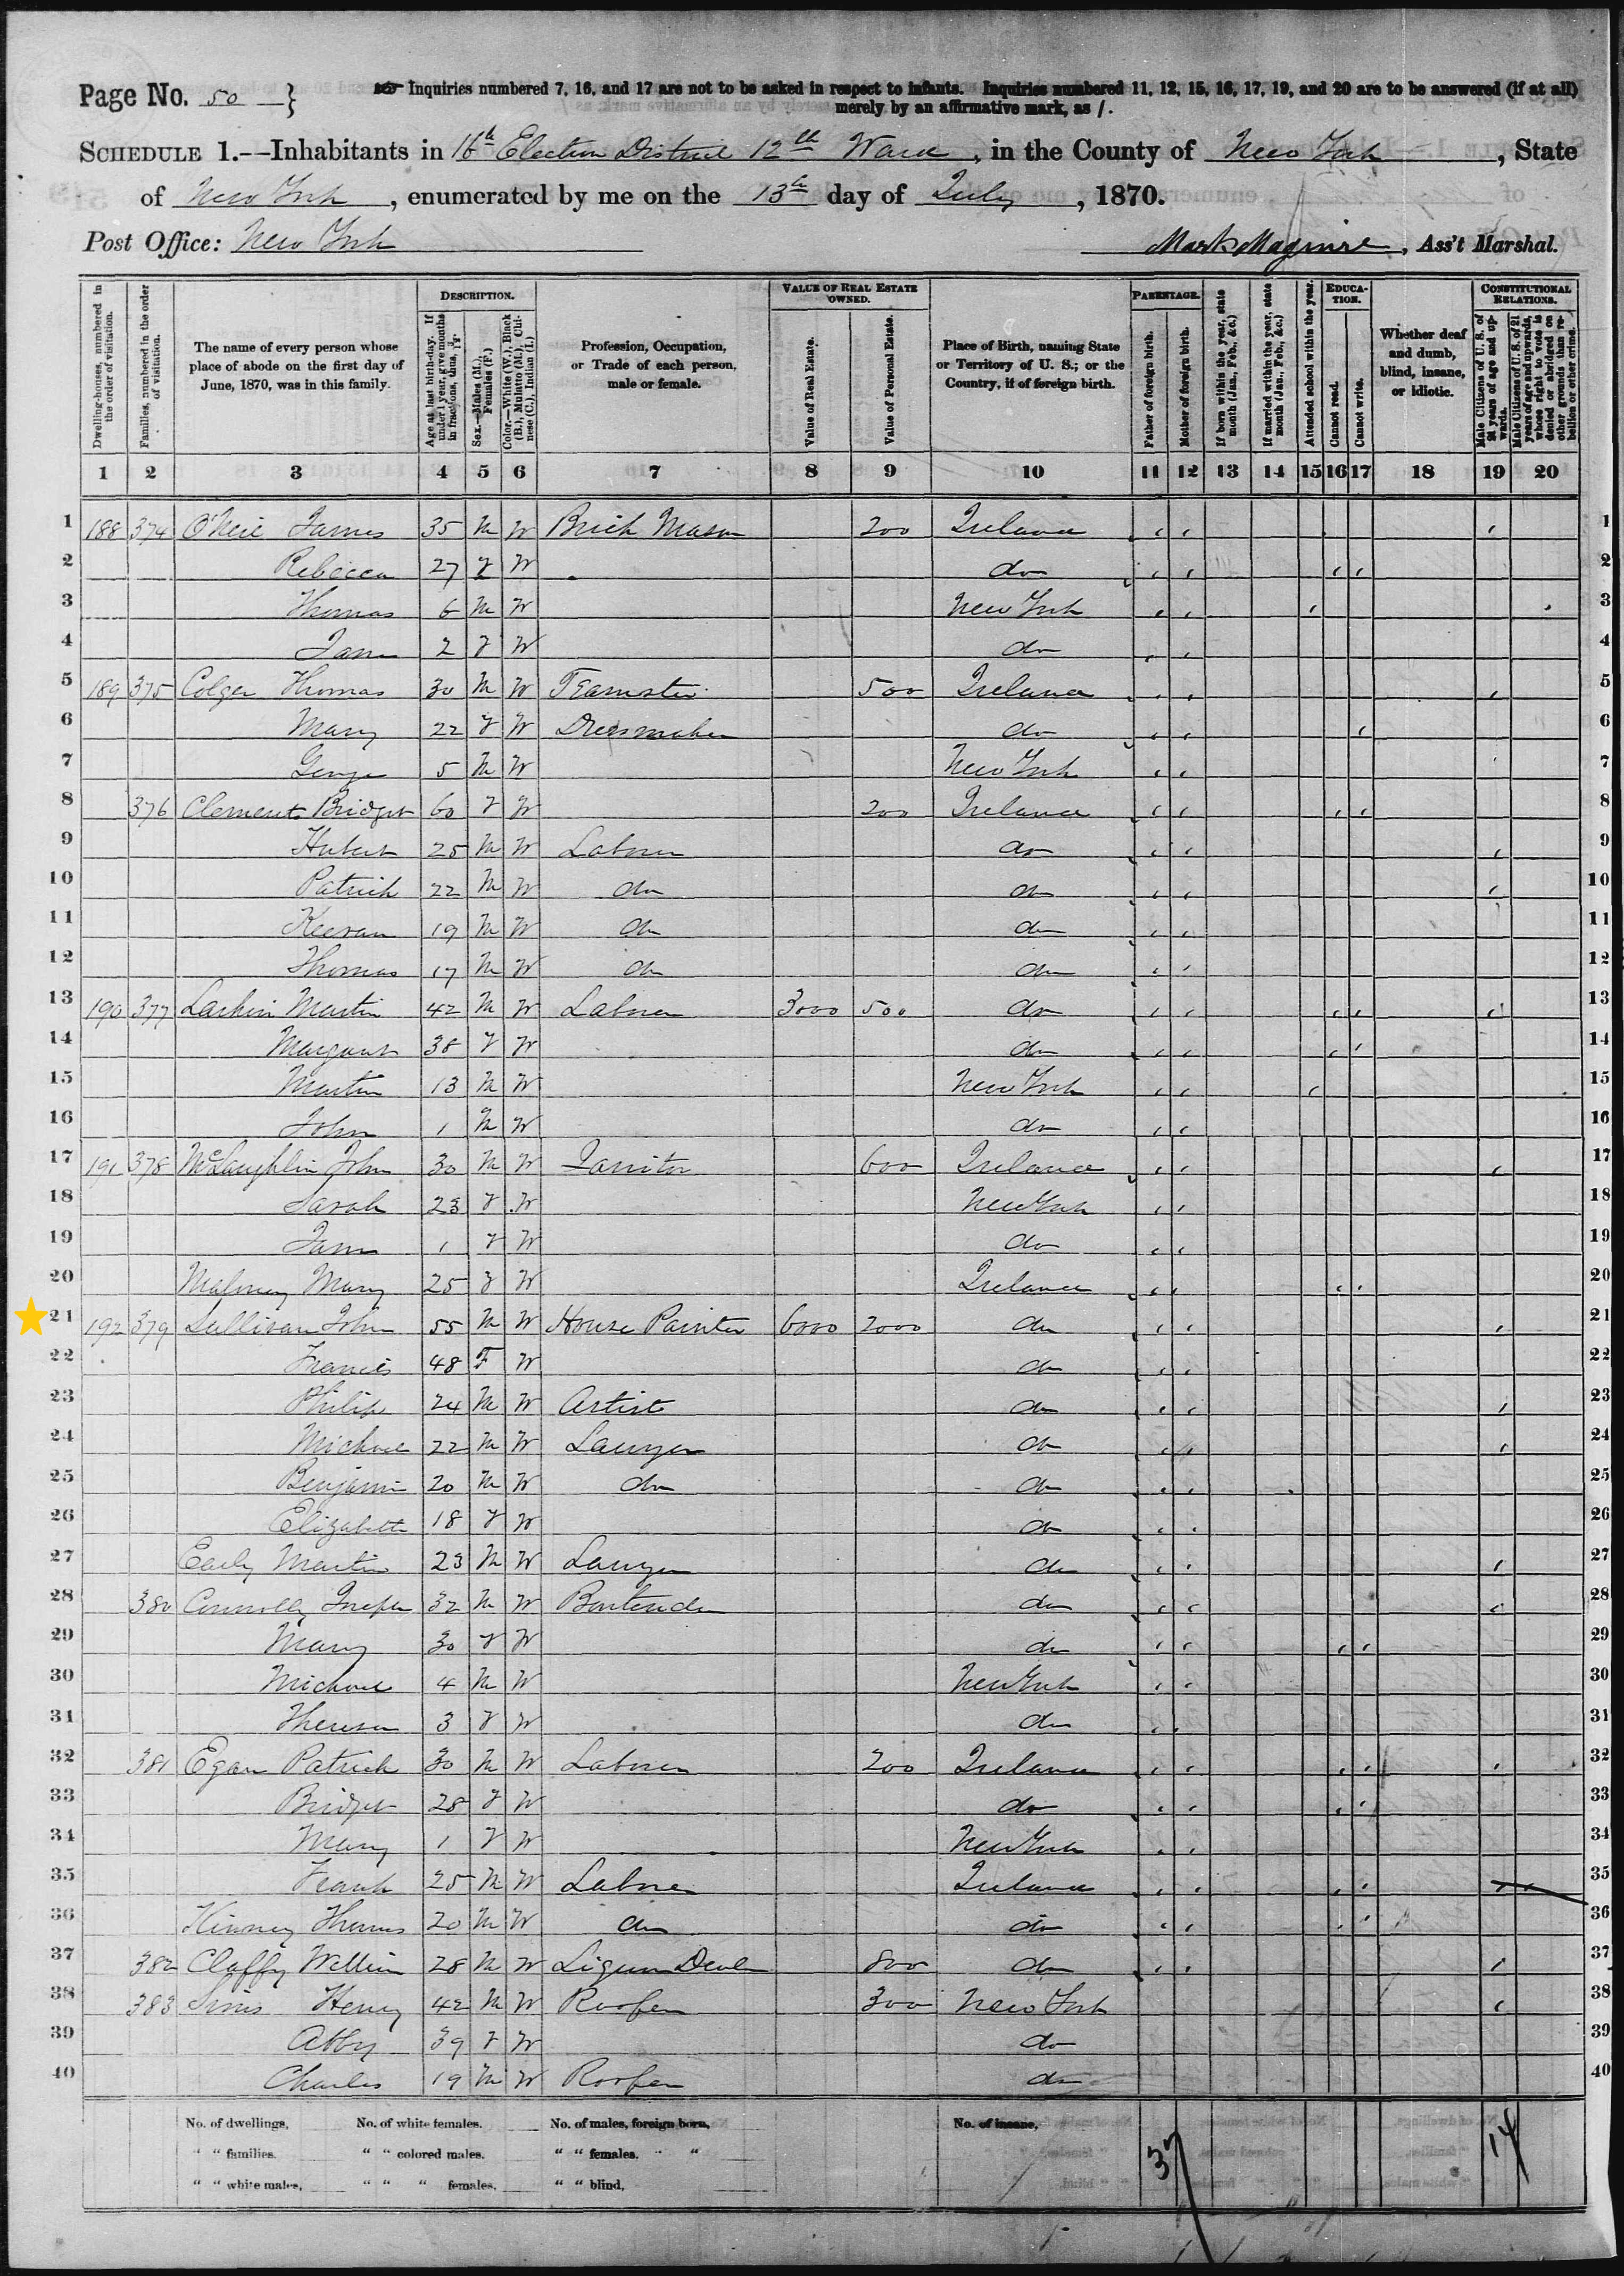 Page No. 50 }
Inquiries numbered 7, 16, and 17 are not to be asked in respect to infants. Inquiries numbered 11, 12, 15, 16, 17, 19, and 20 are to be answered (if at all)
merely by an affirmative mark, as /.
SCHEDULE 1.—Inhabitants in 16th Election District 12th Ward, in the County of New York, State
of New York, enumerated by me on the 13th day of July, 1870.
Post Office: New York
Mark Maguire, Ass't Marshal.
Dwelling-houses, numbered in the order of visitation.
Families, numbered in the order of visitation.
The name of every person whose place of abode on the first day of June, 1870, was in this family.
DESCRIPTION.
Age at last birth-day. If under 1 year, give months in fractions, thus, 3/12.
Sex.—Males (M.), Females (F.)
Color.—White (W.), Black (B.), Mulatto (M.), Chinese (C.), Indian (I.)
Profession, Occupation, or Trade of each person, male or female.
VALUE OF REAL ESTATE OWNED.
Value of Real Estate.
Value of Personal Estate.
Place of Birth, naming State or Territory of U. S.; or the Country, if of foreign birth.
PARENTAGE.
Father of foreign birth.
Mother of foreign birth.
If born within the year, state month (Jan., Feb., &c.)
If married within the year, state month (Jan., Feb., &c.)
Attended school within the year.
EDUCATION.
Cannot read.
Cannot write.
Whether deaf and dumb, blind, insane, or idiotic.
CONSTITUTIONAL RELATIONS.
Male Citizens of U. S. of 21 years of age and upwards.
Male Citizens of U. S. of 21 years of age and upwards, whose right to vote is denied or abridged on other grounds than rebellion or other crime.
1 2 3 4 5 6 7 8 9 10 11 12 13 14 15 16 17 18 19 20
1 188 374 O'Neil James 35 M W Brick Mason 200 Ireland 1
2 Rebecca 27 F W do 2
3 Thomas 6 M W New York 3
4 Jane 2 F W do 4
5 189 375 Colger Thomas 30 M W Teamster 500 Ireland 5
6 Mary 22 F W Dressmaker do 6
7 George 5 M W New York 7
8 376 Clement Bridget 60 F W 200 Ireland 8
9 Hubert 25 M W Laborer do 9
10 Patrick 22 M W do do 10
11 Keeran 19 M W do do 11
12 Thomas 17 M W do do 12
13 190 377 Larkin Martin 42 M W Laborer 3000 500 do 13
14 Margaret 38 F W do 14
15 Martin 13 M W New York 15
16 John 1 M W do 16
17 191 378 McLaughlin John 30 M W Janitor 600 Ireland 17
18 Sarah 23 F W New York 18
19 Jane 1 F W do 19
20 Maloney Mary 25 F W Ireland 20
21 192 379 Sullivan John 55 M W House Painter 6000 2000 do 21
22 Francis 48 F W do 22
23 Philip 24 M W Artist do 23
24 Michael 22 M W Lawyer do 24
25 Benjamin 20 M W do do 25
26 Elizabeth 18 F W do 26
27 Early Martin 23 M W Lawyer do 27
28 380 Connolly Joseph 32 M W Bartender do 28
29 Mary 30 F W do 29
30 Michael 4 M W New York 30
31 Theresa 3 F W do 31
32 381 Egan Patrick 30 M W Laborer 200 Ireland 32
33 Bridget 28 F W do 33
34 Mary 1 F W New York 34
35 Frank 25 M W Laborer Ireland 35
36 Kinney Thomas 20 M W do do 36
37 382 Claffy William 28 M W Liquor Dealer 800 do 37
38 383 Sims Henry 42 M W Roofer 300 New York 38
39 Abby 39 F W do 39
40 Charles 19 M W Roofer do 40
No. of dwellings, No. of white females. No. of males, foreign born, No. of insane,
" " families. " " colored males, " " females. " "
" " white males, " " " females, " " blind,
37 14